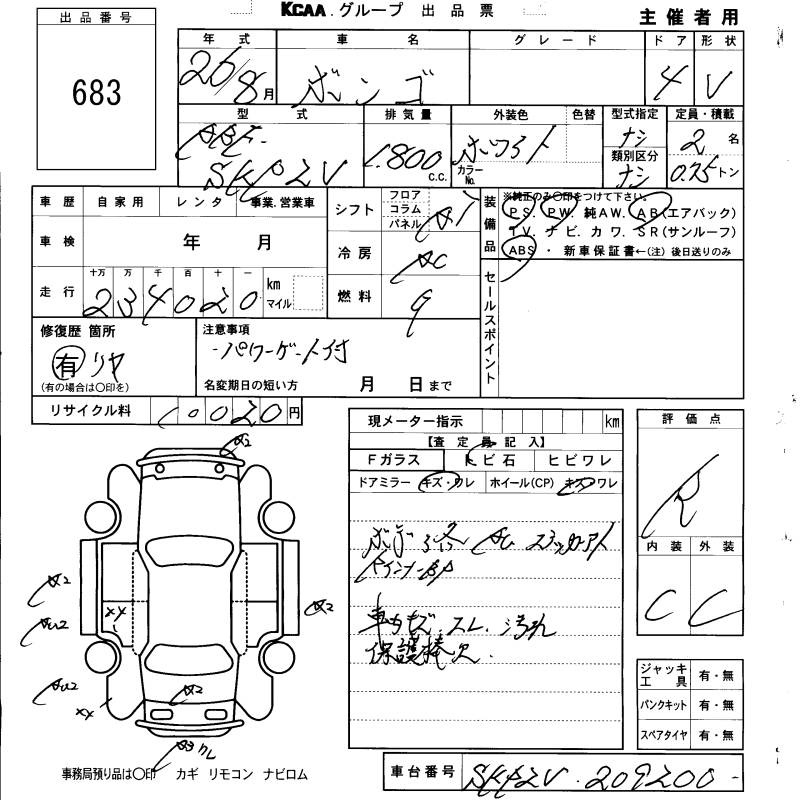 KCAA.グループ 出品票
主催者用
出品番号
683
年式 車名 グレード ドア 形状
26/8月 ボンゴ 4 V
型式 排気量 外装色 色替 型式指定 定員・積載
ABF- 1.800 C.C. ホワイト カラーNo. ナシ 2名
SKP2V 類別区分 ナシ 0.75トン
車歴 自家用 レンタ 事業.営業車
車検 年 月
走行 十万 万 千 百 十 一 km マイル
234020
シフト フロア コラム パネル AT
冷房 AC
燃料 G
装備品 ※純正のみ〇印をつけて下さい。
PS. PW. 純AW. AB(エアバック)
TV. ナビ. カワ. SR(サンルーフ)
ABS ・ 新車保証書←(注) 後日送りのみ
セールスポイント
修復歴 箇所
有 リヤ
(有の場合は〇印を)
注意事項
・パワーゲート付
名変期日の短い方 月 日まで
リサイクル料 10020円
現メーター指示 km
【査定員記入】
Fガラス トビ石 ヒビワレ
ドアミラー キズ・ワレ ホイール(CP) キズ・ワレ
ボデー
ペイント
車内キズ.スレ.汚れ
保護棒欠.
評価点
R
内装 外装
C C
A2
A2
AU2
XX
A2
AU2
XX
A2
A3 ワレ
ジャッキ工具 有・無
パンクキット 有・無
スペアタイヤ 有・無
事務局預り品は〇印 カギ リモコン ナビロム
車台番号 SKP2V-209200-